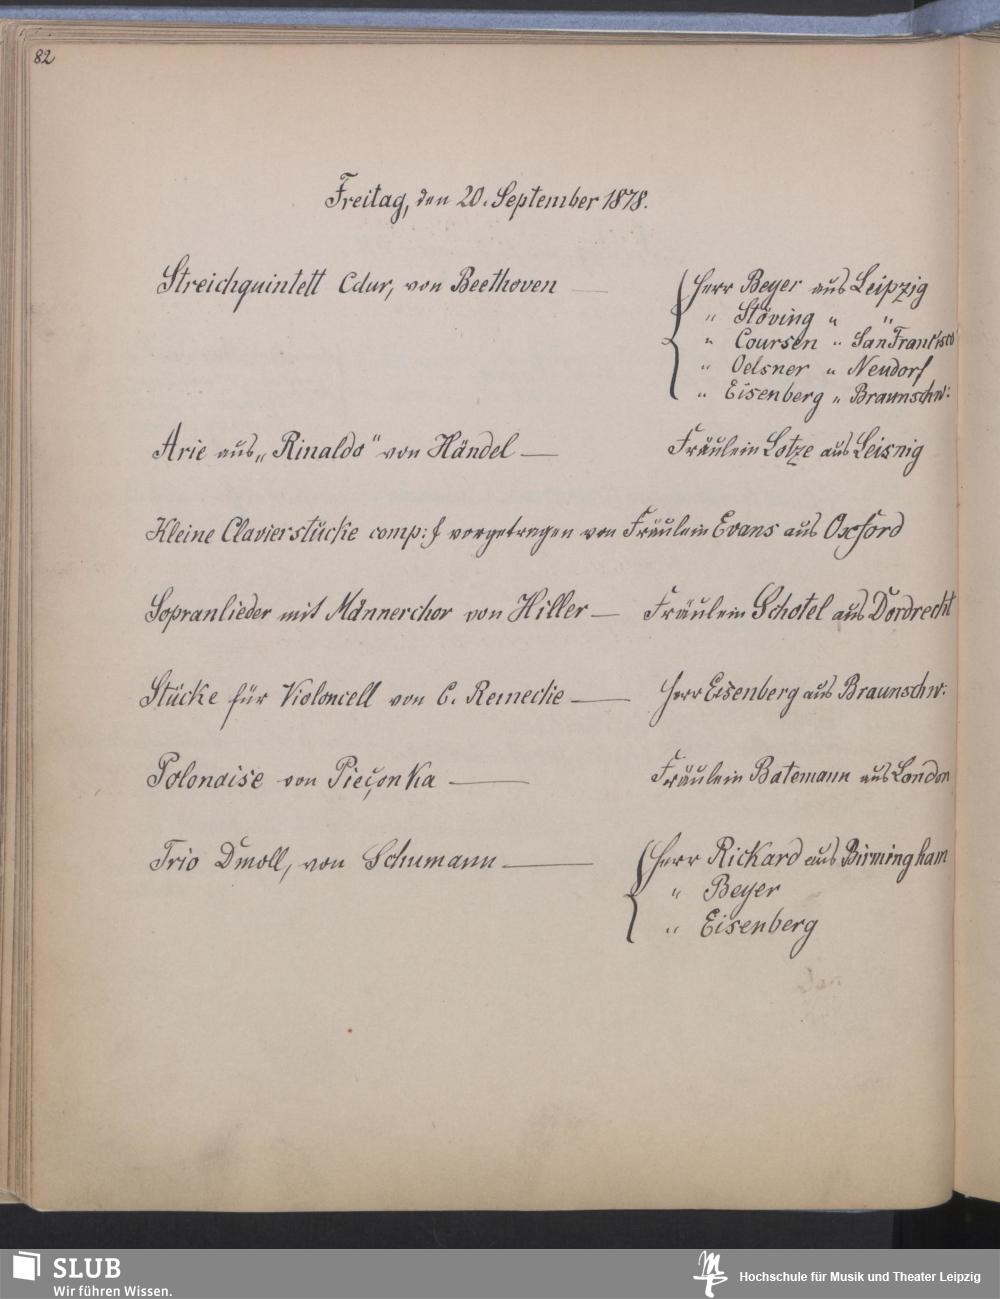 82
Freitag, den 20. September 1878.
Streichquintett Cdur, von Beethoven — Herr Beyer aus Leipzig
" Stöving " "
" Coursen " San Francisco
" Oelsner " Neudorf
" Eisenberg " Braunschw:
Arie aus „Rinaldo" von Händel — Fräulein Lotze aus Leisnig
Kleine Clavierstücke comp: & vorgetragen von Fräulein Evans aus Oxford
Sopranlieder mit Männerchor von Hiller — Fräulein Schotel aus Dordrecht
Stücke für Violoncell von C. Reinecke — Herr Eisenberg aus Braunschw:
Polonaise von Pieçonka — Fräulein Batemann aus London
Trio Dmoll, von Schumann — Herr Rickard aus Birmingham
" Beyer
" Eisenberg
SLUB
Wir führen Wissen.
Hochschule für Musik und Theater Leipzig